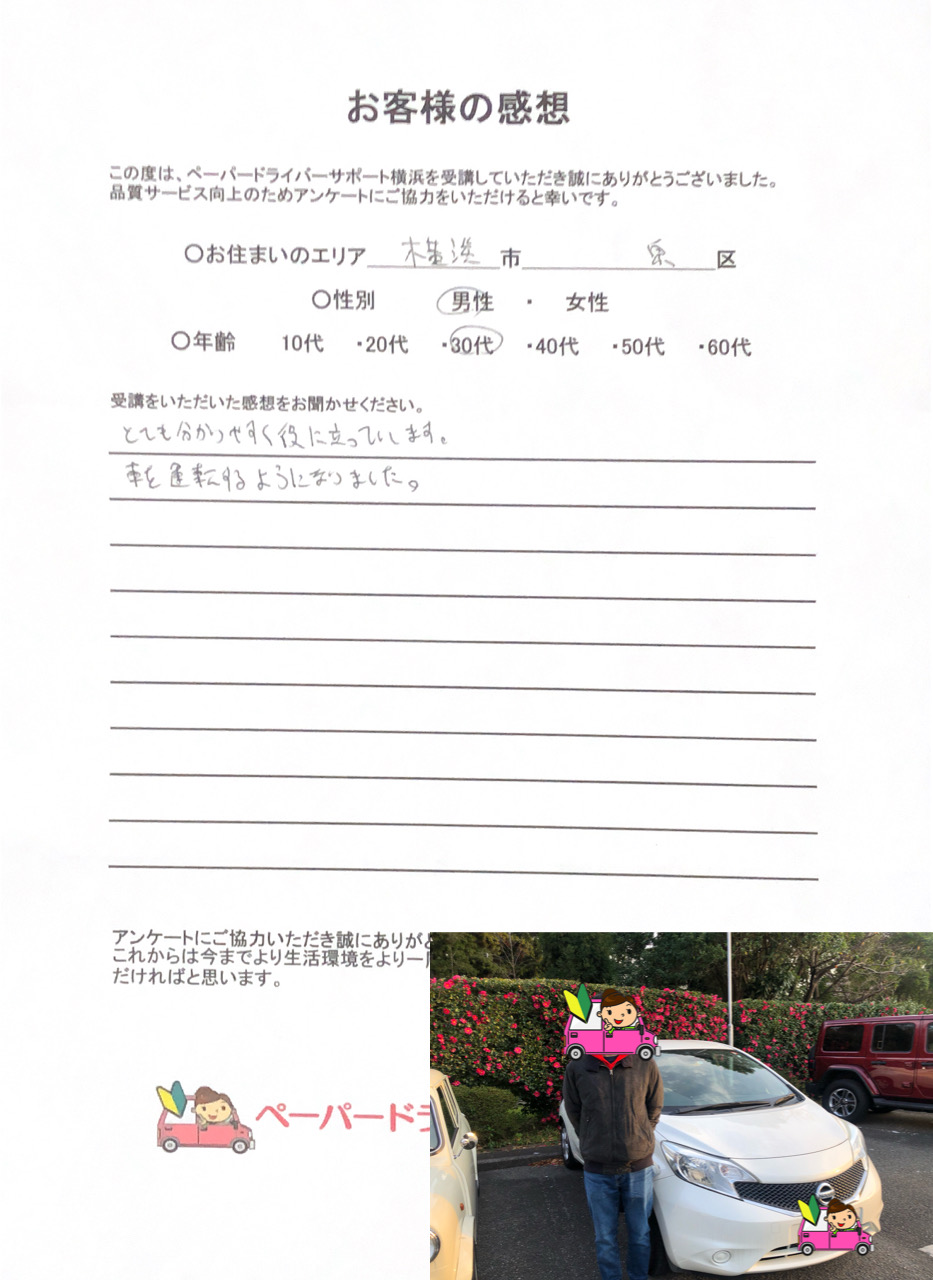 お客様の感想
この度は、ペーパードライバーサポート横浜を受講していただき誠にありがとうございました。
品質サービス向上のためアンケートにご協力をいただけると幸いです。
〇お住まいのエリア 横浜 市 泉 区
〇性別 男性 ・ 女性
〇年齢 10代 ・20代 ・30代 ・40代 ・50代 ・60代
受講をいただいた感想をお聞かせください。
とても分かりやすく役に立っています。
車を運転するようになりました。
アンケートにご協力いただき誠にありが
これからは今までより生活環境をより一
だければと思います。
ペーパードラ